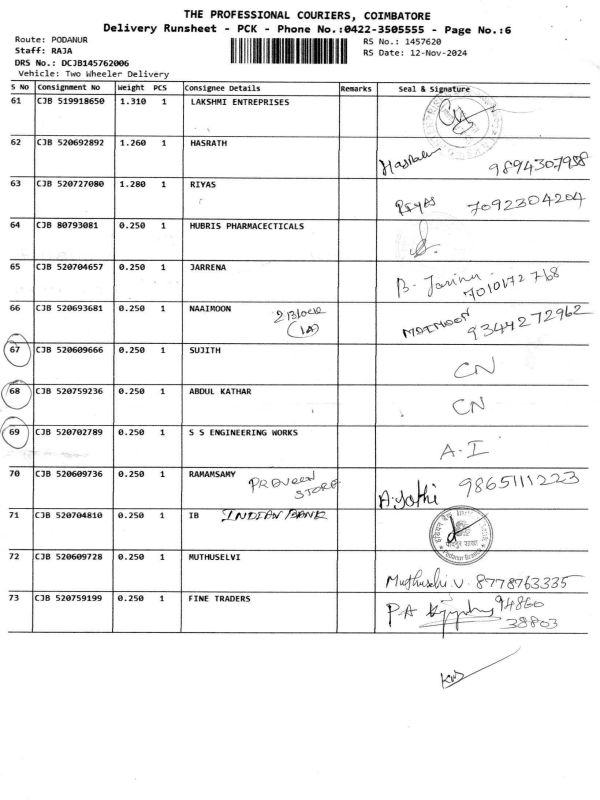 THE PROFESSIONAL COURIERS, COIMBATORE
Delivery Runsheet - PCK - Phone No.:0422-3505555 - Page No.:6
Route: PODANUR
Staff: RAJA
DRS No.: DCJB145762006
Vehicle: Two Wheeler Delivery
RS No.: 1457620
RS Date: 12-Nov-2024
S No Consignment No Weight PCS Consignee Details Remarks Seal & Signature
61 CJB 519918650 1.310 1 LAKSHMI ENTREPRISES
62 CJB 520692892 1.260 1 HASRATH
9894307988
63 CJB 520727080 1.280 1 RIYAS RIYAS 7092304204
64 CJB 80793081 0.250 1 HUBRIS PHARMACECTICALS
65 CJB 520704657 0.250 1 JARRENA B.
7010172768
66 CJB 520693681 0.250 1 NAAIMOON 2 Block
(1A)
9344272962
67 CJB 520609666 0.250 1 SUJITH CN
68 CJB 520759236 0.250 1 ABDUL KATHAR CN
69 CJB 520702789 0.250 1 S S ENGINEERING WORKS A.I
70 CJB 520609736 0.250 1 RAMAMSAMY PRAVEEN
STORE
A.Jothi 9865111223
71 CJB 520704810 0.250 1 IB INDIAN BANK
Podanur Branch
72 CJB 520609728 0.250 1 MUTHUSELVI
8778763335
73 CJB 520759199 0.250 1 FINE TRADERS P.A 94860
38803